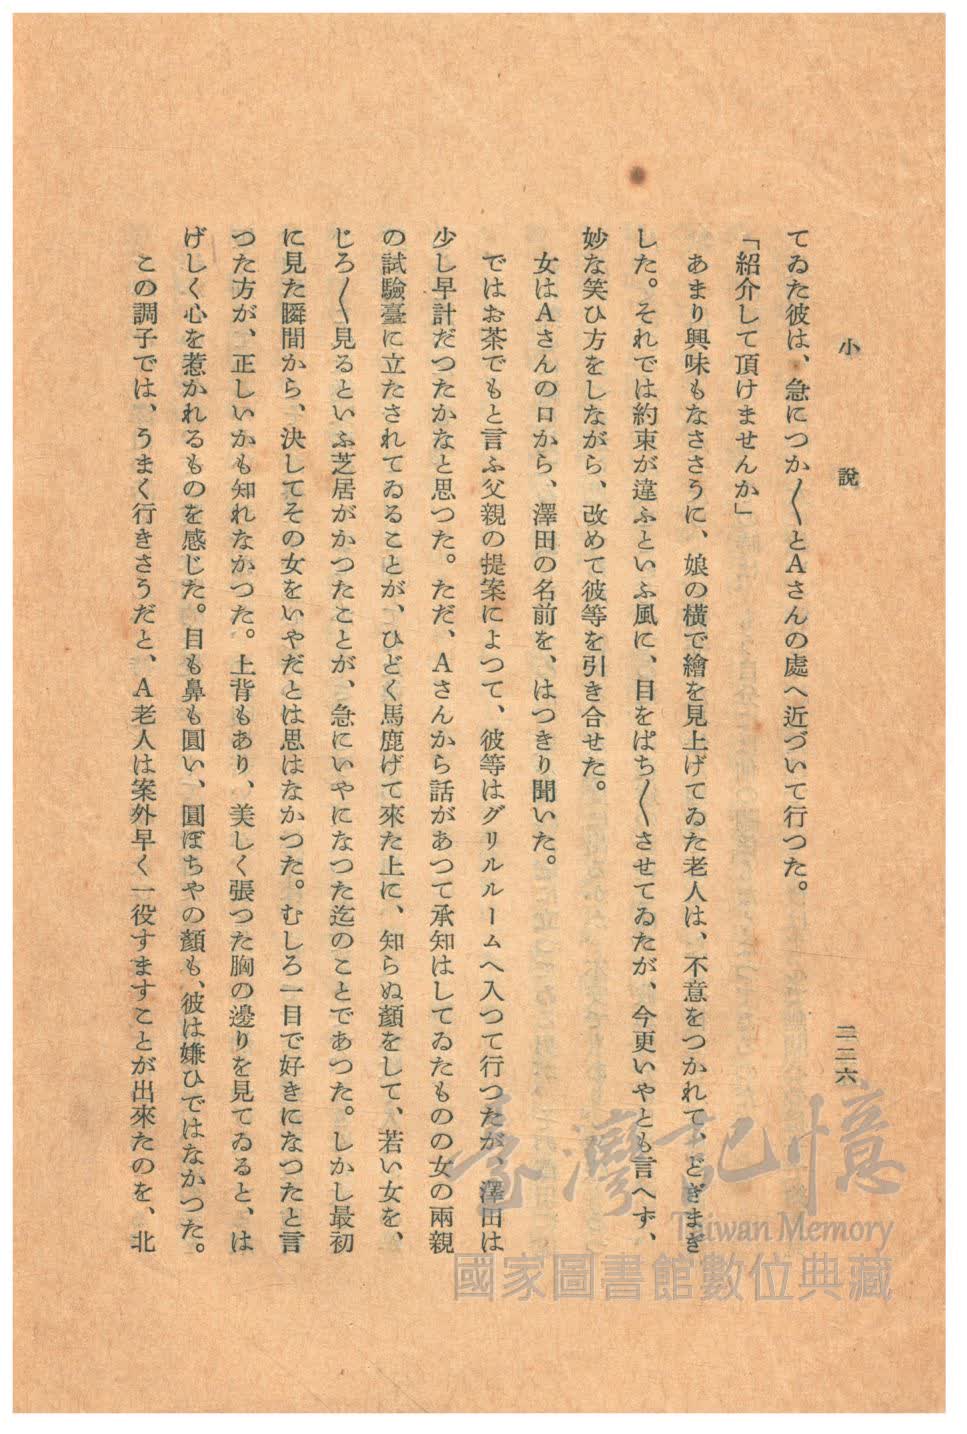 小說
二二六
てゐた彼は、急につか〳〵とAさんの處へ近づいて行つた。
「紹介して頂けませんか」
あまり興味もなささうに、娘の橫で繪を見上げてゐた老人は、不意をつかれて、どぎまぎ
した。それでは約束が違ふといふ風に、目をぱち〳〵させてゐたが、今更いやとも言へず、
妙な笑ひ方をしながら、改めて彼等を引き合せた。
女はAさんの口から、澤田の名前を、はつきり聞いた。
ではお茶でもと言ふ父親の提案によつて、彼等はグリルルームへ入つて行つたが、澤田は
少し早計だつたかなと思つた。ただ、Aさんから話があつて承知はしてゐたものの女の兩親
の試驗臺に立たされてゐることが、ひどく馬鹿げて來た上に、知らぬ顏をして、若い女を、
じろ〳〵見るといふ芝居がかつたことが、急にいやになつた迄のことであつた。しかし最初
に見た瞬間から、決してその女をいやだとは思はなかつた。むしろ一目で好きになつたと言
つた方が、正しいかも知れなかつた。上背もあり、美しく張つた胸の邊りを見てゐると、は
げしく心を惹かれるものを感じた。目も鼻も圓い、圓ぽちやの顏も、彼は嫌ひではなかつた。
この調子では、うまく行きさうだと、A老人は案外早く一役すますことが出來たのを、北
臺灣記憶
Taiwan Memory
國家圖書館數位典藏